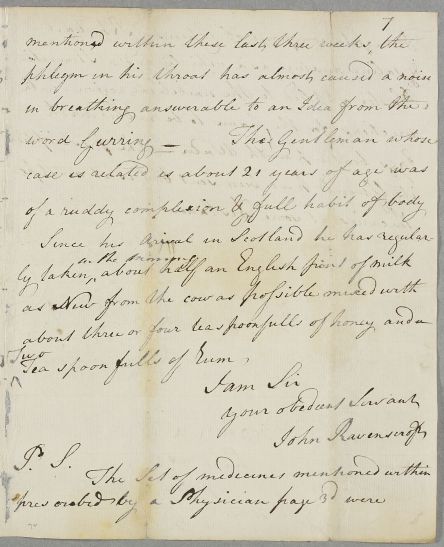 7
mentioned within these last three weeks, the
phlegm in his throat has almost caused a noise
in breathing answerable to an Idea from the
word Gurring — The Gentleman whose
case is related is about 21 years of age was
of a ruddy complexion & full habit of body
Since his Arival in Scotland he has regular-
in the
ly taken about half an English pint of milk
as New from the cow as possible mixed with
about three or four tea spoonfulls of honey and
Two
Tea spoonfulls of Rum,
I am Sir
your obedient Servant
John Ravenscroft
P. S.
The Set of medecines mentioned within
prescribed by a Physician page 3d were